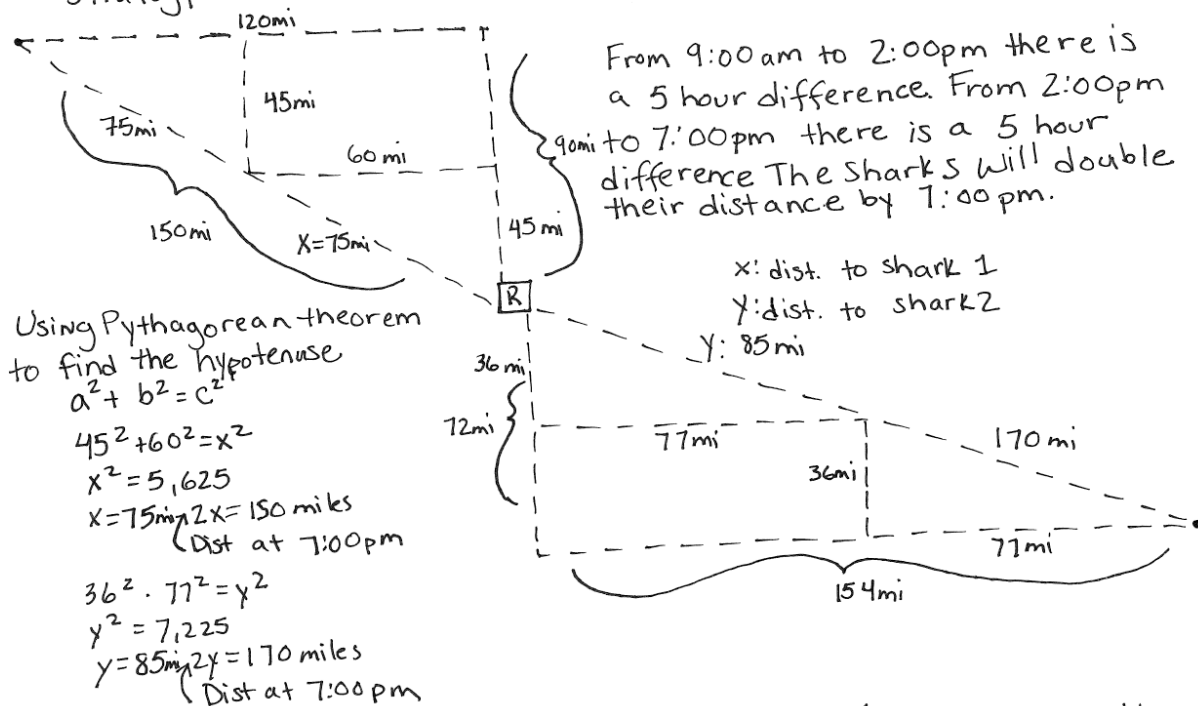 120mi
45mi
75mi
60 mi
90mi
150mi
X=75mi
45 mi
R
From 9:00am to 2:00pm there is
a 5 hour difference. From 2:00pm
to 7:00pm there is a 5 hour
difference The Sharks will double
their distance by 7:00pm.
x: dist. to shark 1
y: dist. to shark 2
Y: 85 mi
36 mi
72mi
77mi
36mi
170 mi
77mi
154mi
Using Pythagorean theorem
to find the hypotenuse
a² + b² = c²
45² + 60² = x²
x² = 5,625
x = 75mi, 2x = 150 miles
Dist at 7:00pm
36² · 77² = y²
y² = 7,225
y = 85mi, 2y = 170 miles
Dist at 7:00pm